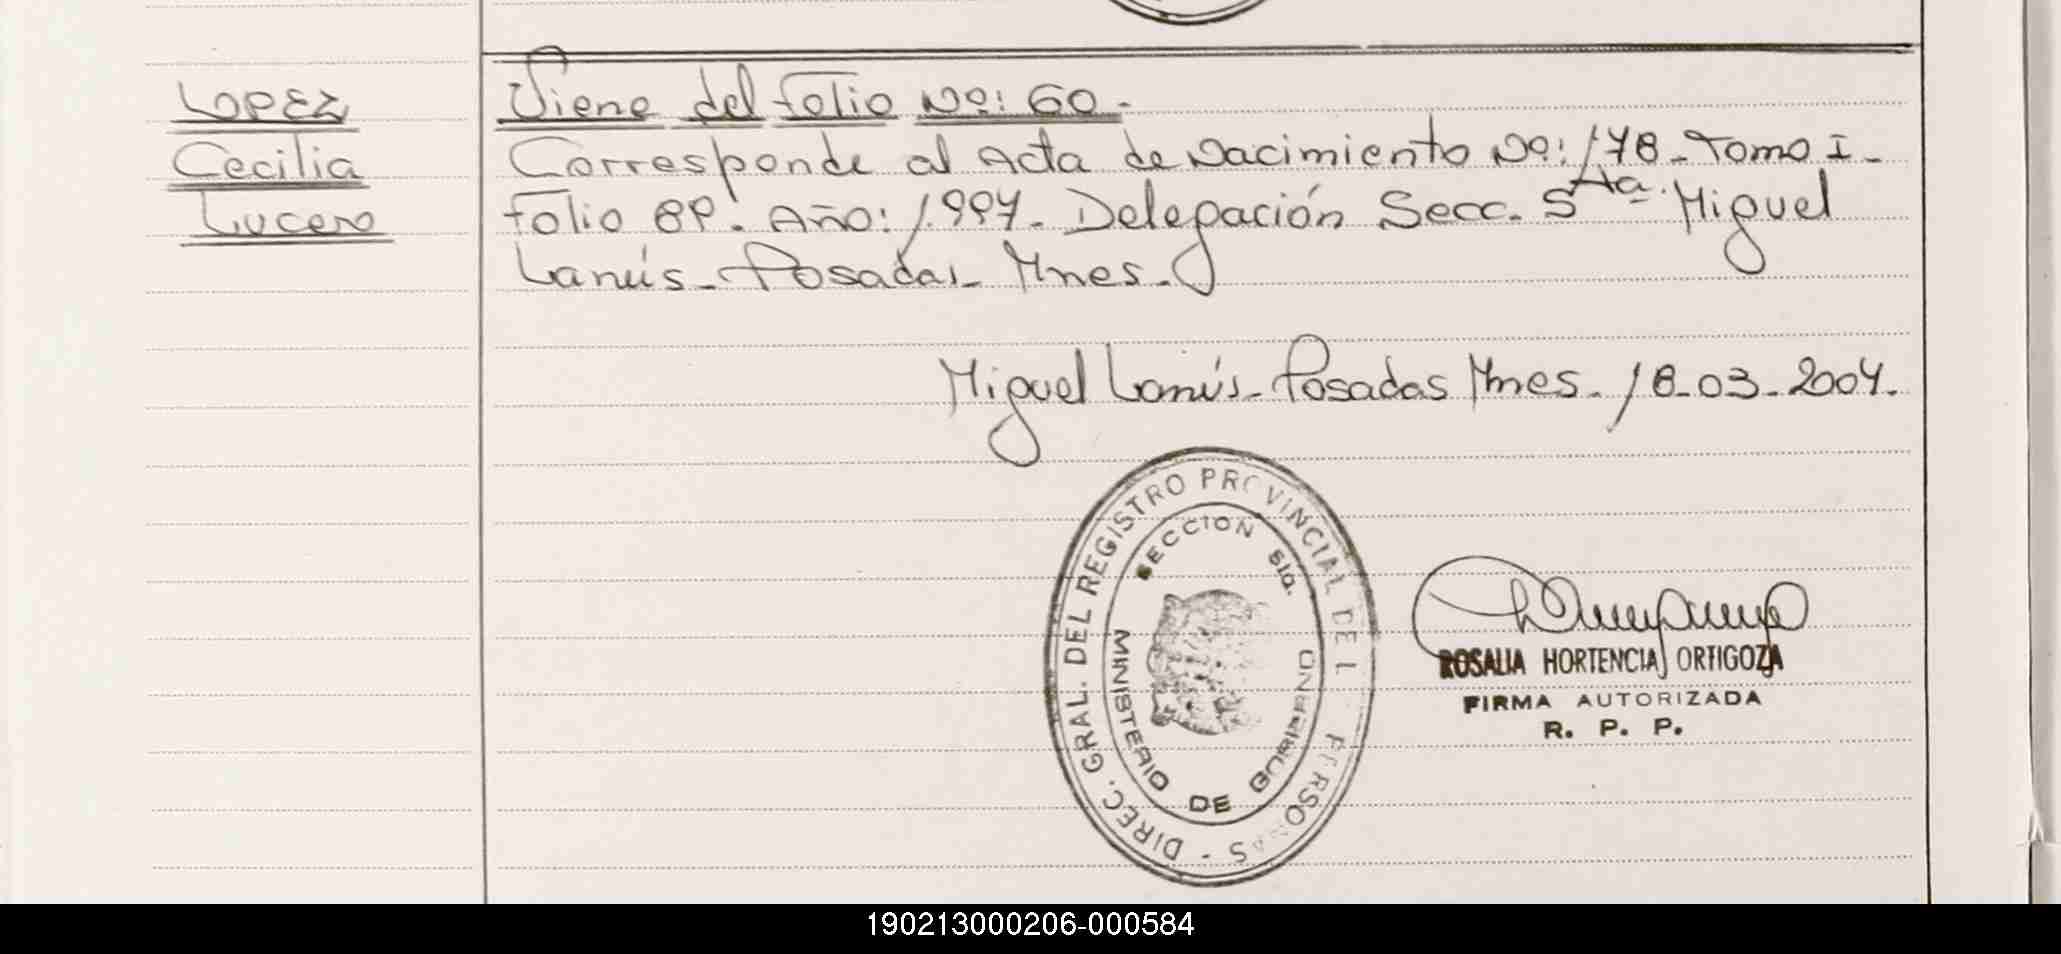 LOPEZ
Cecilia
Lucero
Viene del folio Nº: 60.-
Corresponde al Acta de Nacimiento Nº: 178.- Tomo I.-
folio 89. Año: 1.994.- Delegación Secc. 5ta. Miguel
Lanús.- Posadas.- Mnes.-
Miguel Lanús.- Posadas Mnes. 18-03-2004.
DIREC. GRAL. DEL REGISTRO PROVINCIAL DE L PERSONAS -
SECCION
MINISTERIO DE GOBIERNO
ROSALIA HORTENCIA ORTIGOZA
FIRMA AUTORIZADA
R. P. P.
190213000206-000584